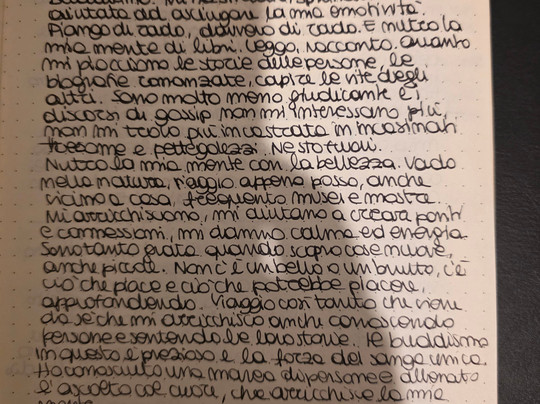 aiutato ad asciugare la mia emotività.
Piango di rado, davvero di rado. E nutro la
mia mente di libri. Leggo, racconto. Quanto
mi piacciono le storie delle persone, le
biografie romanzate, capire le vite degli
altri. Sono molto meno giudicante e i
discorsi di gossip non mi interessano più,
non mi trovo più incastrata in
e pettegolezzi. Ne sto fuori.
Nutro la mia mente con la bellezza. Vado
nella natura, viaggio appena posso, anche
vicino a casa, frequento musei e mostre.
Mi arricchiscono, mi aiutano a creare ponti
e connessioni, mi danno calma ed energia.
Sono tanto grata quando scopro cose nuove,
anche piccole. Non c'è un bello o un brutto, c'è
ciò che piace e ciò che potrebbe piacere,
approfondendo. Viaggio così tanto che viene
da sé che mi arricchisco anche conoscendo
persone e sentendo le loro storie. Il buddismo
in questo è prezioso e la forza del sangha unica.
Ho conosciuto una marea di persone e allenato
l'ascolto col cuore, che arricchisce la mia